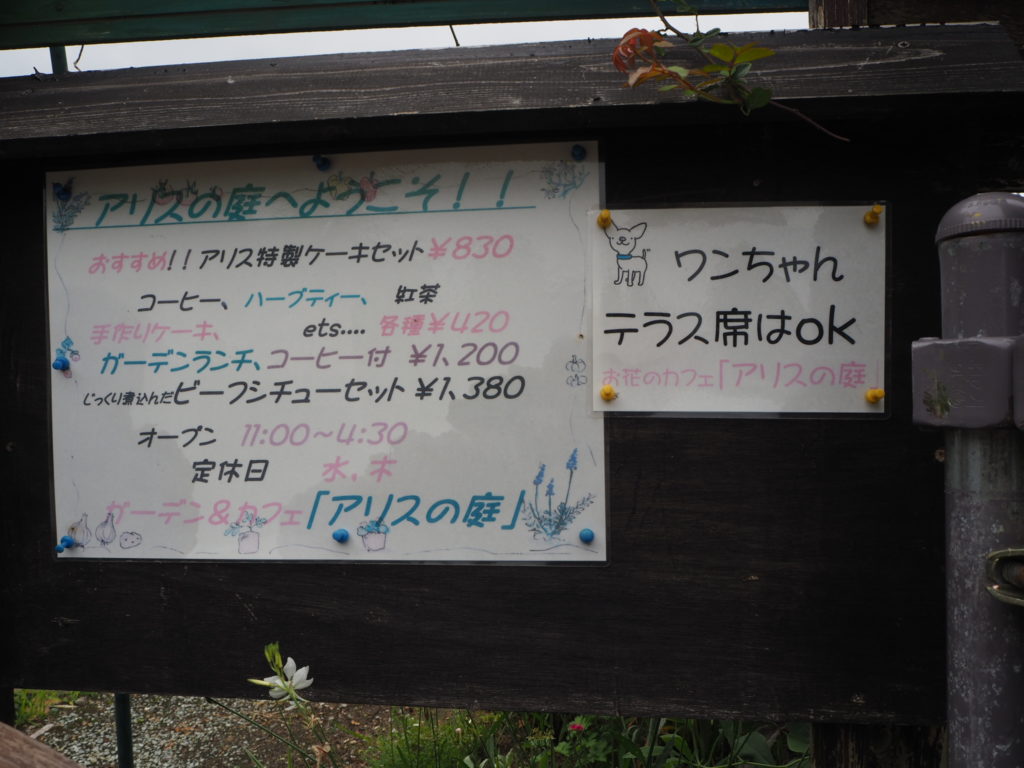 アリスの庭へようこそ！！
おすすめ！！アリス特製ケーキセット￥830
コーヒー、ハーブティー、 紅茶
手作りケーキ、 ets.... 各種￥420
ガーデンランチ、コーヒー付 ￥1,200
じっくり煮込んだビーフシチューセット￥1,380
オープン 11:00～4:30
定休日 水，木
ガーデン＆カフェ「アリスの庭」
ワンちゃん
テラス席はok
お花のカフェ「アリスの庭」